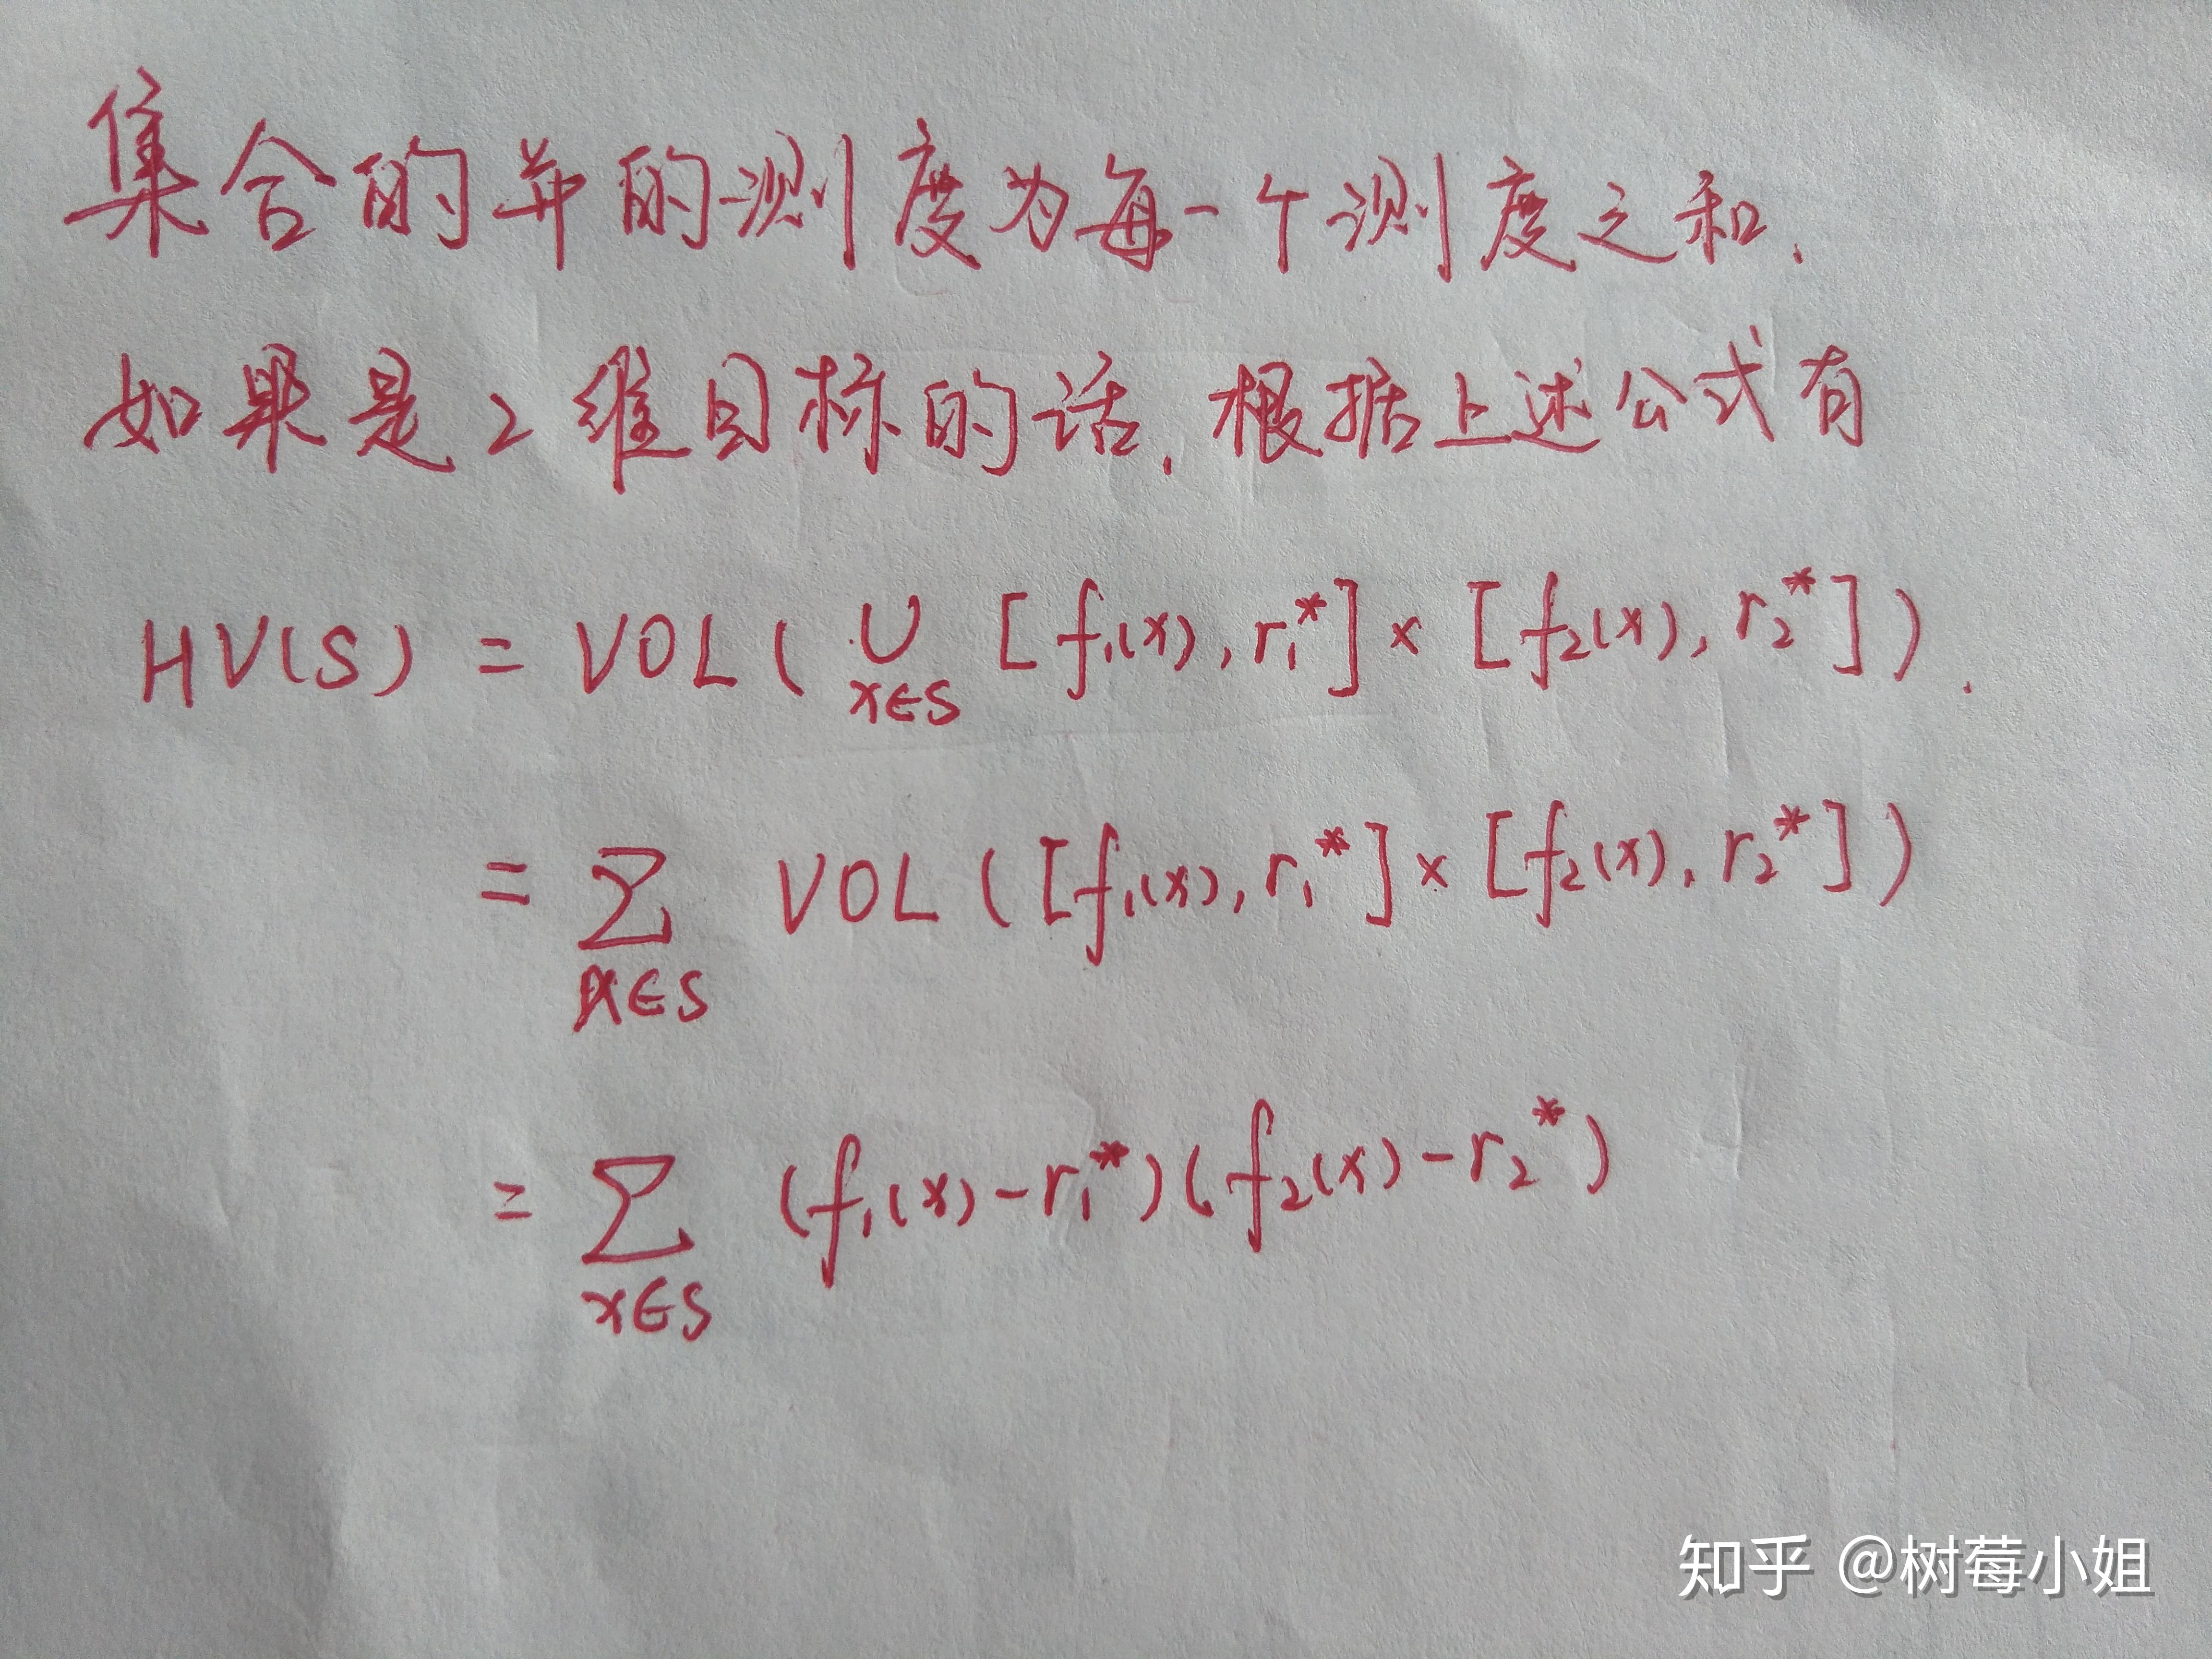 集合的并的测度为每一个测度之和.
如果是2维目标的话.根据上述公式有
HV(S) = VOL( ∪ [f₁(x), r₁*] × [f₂(x), r₂*] ).
x∈S
= ∑ VOL ( [f₁(x), r₁*] × [f₂(x), r₂*] )
x∈S
= ∑ (f₁(x) - r₁*)(f₂(x) - r₂*)
x∈S
知乎 @树莓小姐